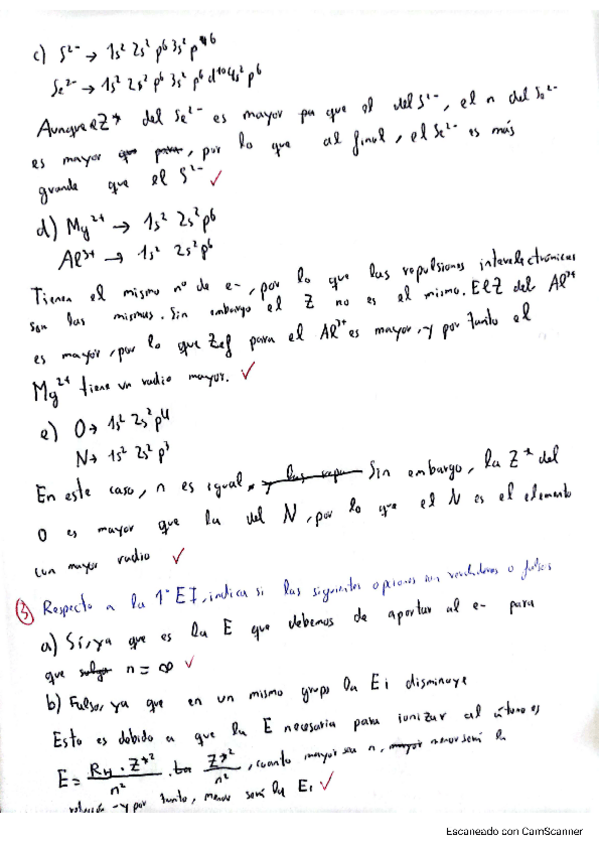 c) S²⁻ → 1s² 2s² p⁶ 3s² p⁶
Se²⁻ → 1s² 2s² p⁶ 3s² p⁶ d¹⁰ 4s² p⁶
Aunque el Z* del Se²⁻ es mayor que el del S²⁻, el n del Se²⁻
es mayor, por lo que al final, el Se²⁻ es más
grande que el S²⁻ ✓
d) Mg²⁺ → 1s² 2s² p⁶
Al³⁺ → 1s² 2s² p⁶
Tienen el mismo nº de e-, por lo que las repulsiones interelectrónicas
son las mismas. Sin embargo el Z no es el mismo. El Z del Al³⁺
es mayor, por lo que Zef para el Al³⁺ es mayor, y por tanto el
Mg²⁺ tiene un radio mayor. ✓
e) O → 1s² 2s² p⁴
N → 1s² 2s² p³
En este caso, n es igual. Sin embargo, la Z* del
O es mayor que la del N, por lo que el N es el elemento
con mayor radio ✓
③ Respecto a la 1ª EI, indica si las siguientes opciones son verdaderas o falsas
a) Sí, ya que es la E que debemos de aportar al e- para
que n = ∞ ✓
b) Falso, ya que en un mismo grupo la Ei disminuye
Esto es debido a que la E necesaria para ionizar al átomo es
E = R_H · Z*² / n² · Z*² / n², cuanto mayor sea n, menor será la
relación y por tanto, menor será la Ei ✓
Escaneado con CamScanner